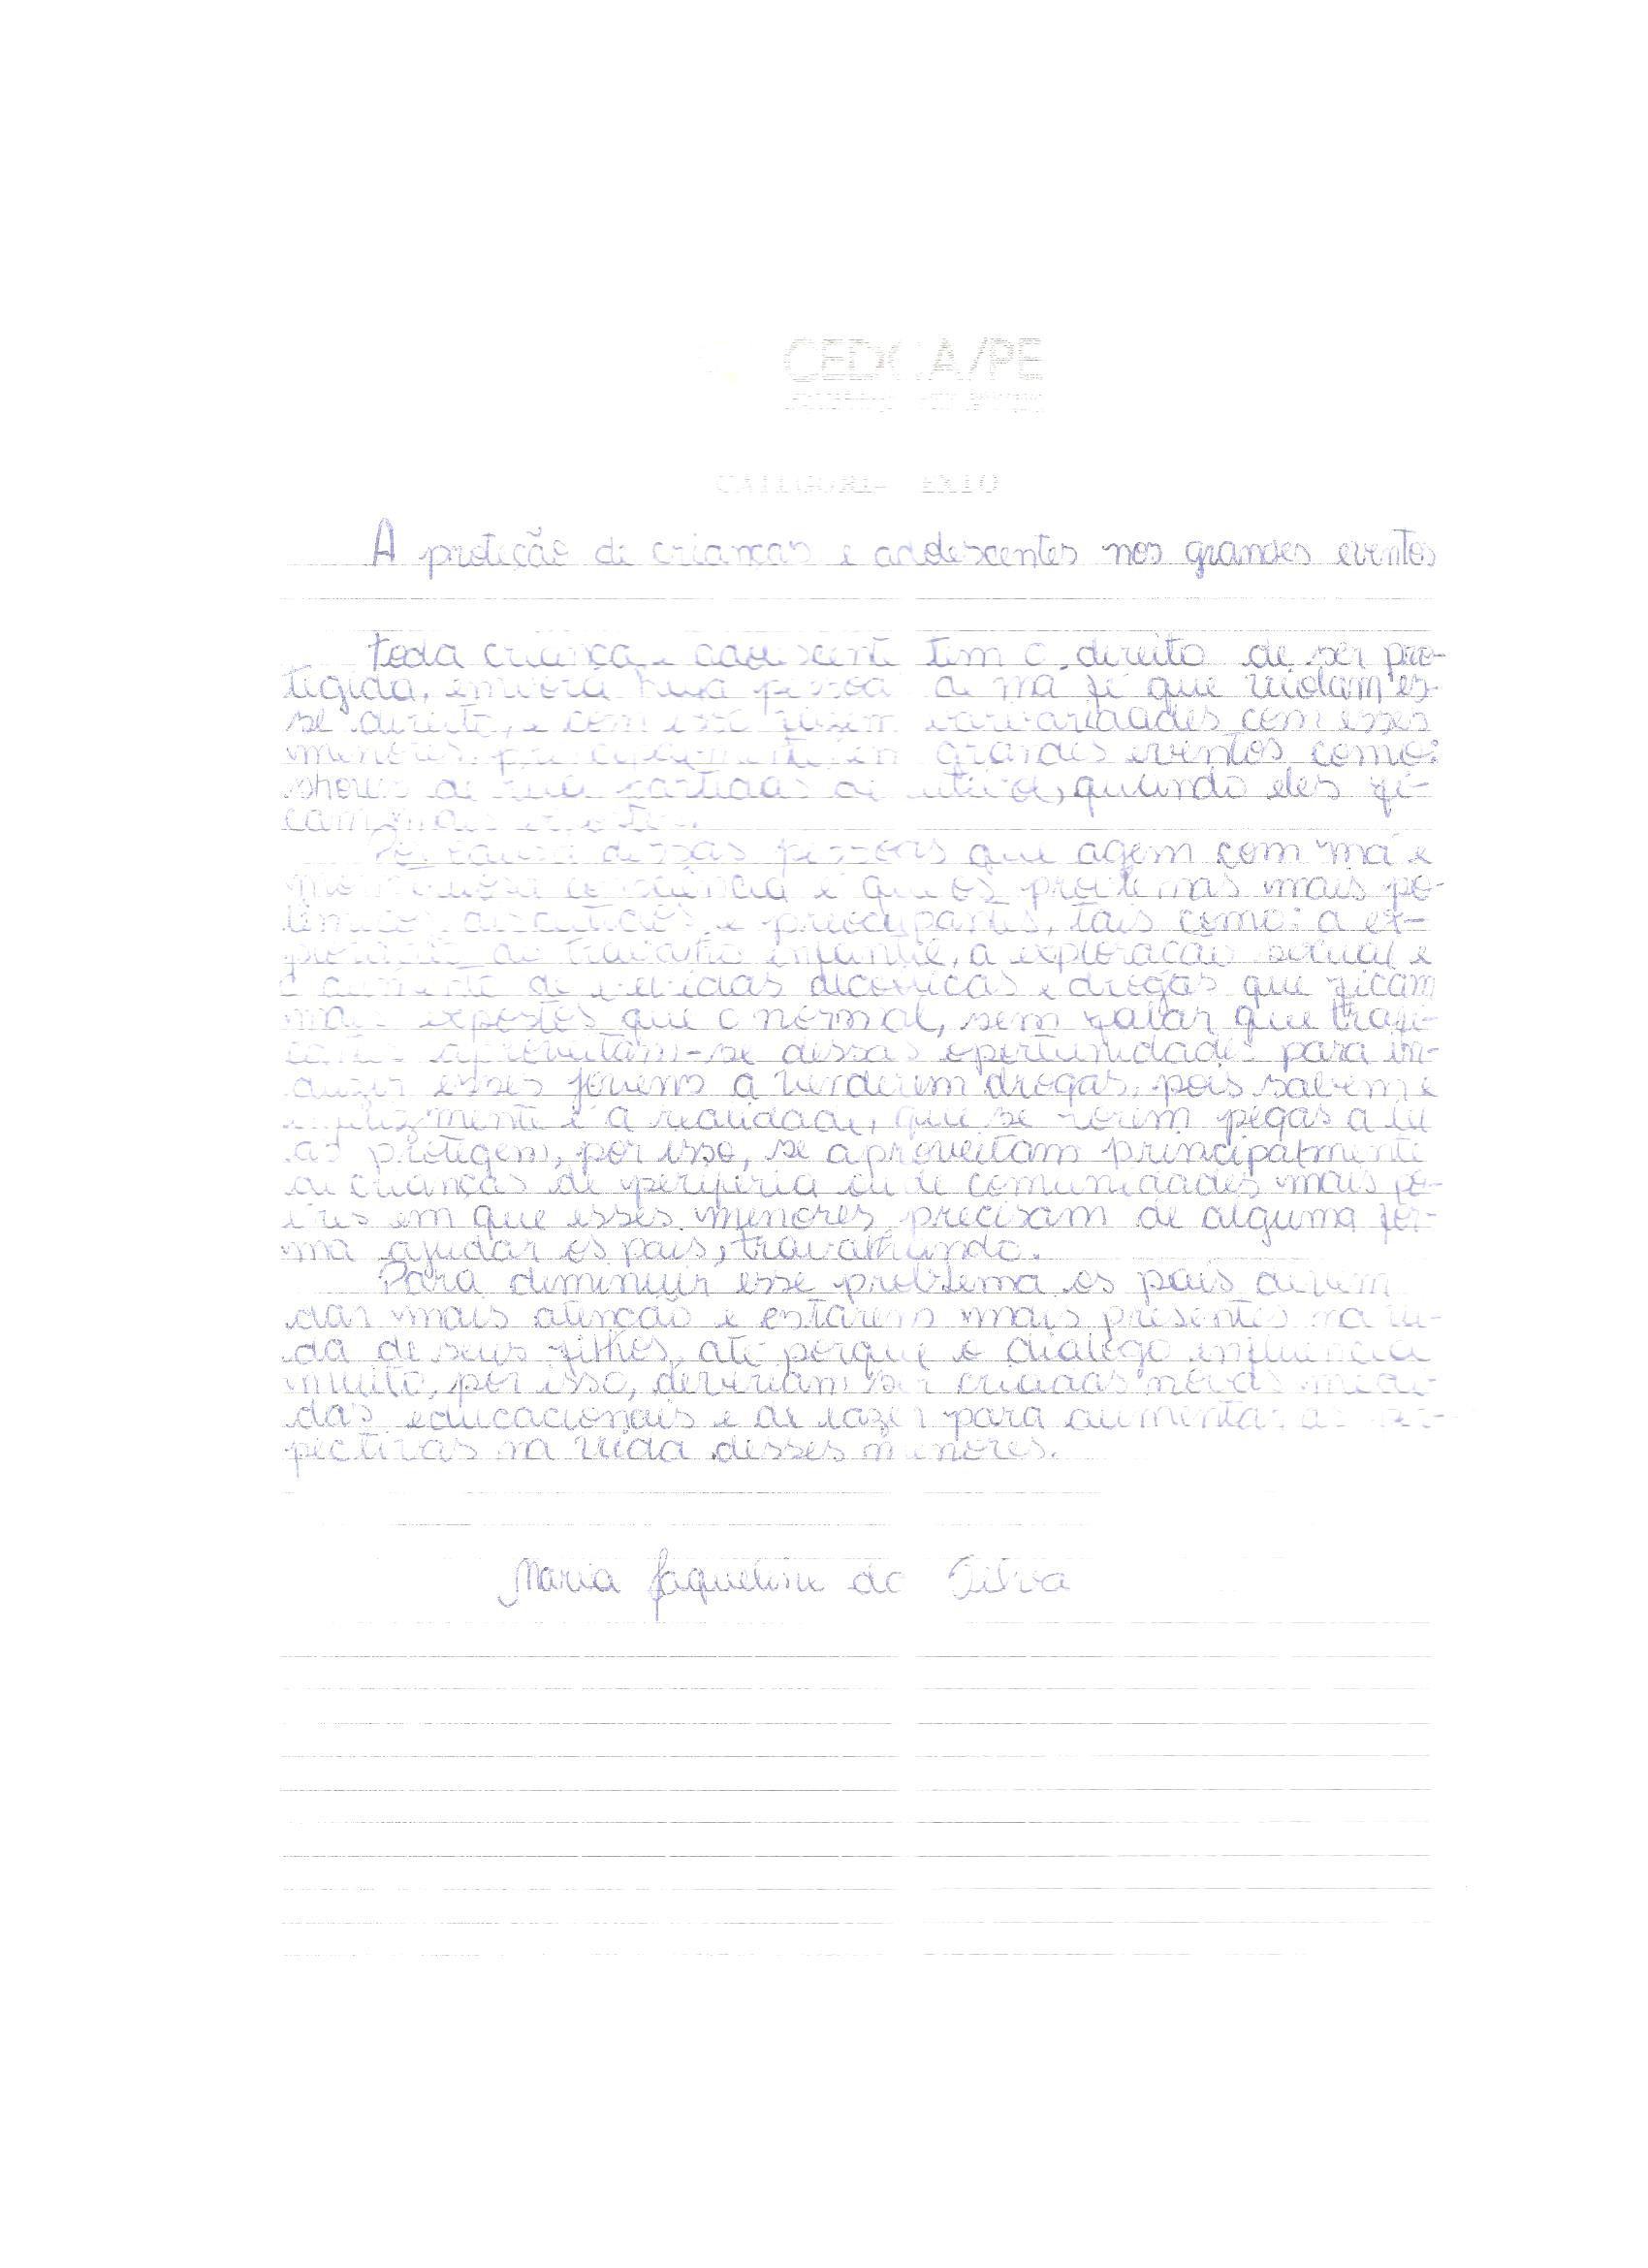 CEDCA/PE
A proteção de crianças e adolescentes nos grandes eventos
Toda criança e adolescente tem o direito de ser pro-
tegida, embora haja pessoas de má fé que violam es-
se direito, e com isso fazem barbaridades com esses
menores, principalmente em grandes eventos como:
shows de rua, partidas de futebol, quando eles fi-
cam mais
Por causa dessas pessoas que agem com má e
consciência é que os problemas mais po-
lêmicos, discutidos e preocupantes, tais como: a ex-
ploração do trabalho infantil, a exploração sexual e
o aumento de bebidas alcoólicas e drogas que ficam
mais expostos que o normal, sem falar que trafi-
cantes aproveitam-se dessas oportunidades para in-
duzir esses jovens a venderem drogas, pois sabem e
infelizmente é a realidade, que se forem pegas a lei
as protegem, por isso, se aproveitam principalmente
de crianças de periferia ou de comunidades mais po-
bres em que esses menores precisam de alguma for-
ma ajudar os pais, trabalhando.
Para diminuir esse problema os pais devem
dar mais atenção e estarem mais presentes na vi-
da de seus filhos, até porque o dialogo influencia
muito, por isso, deveriam ser criadas novas medi-
das educacionais e de lazer para aumentar as pers-
pectivas na vida desses menores.
Maria Jaqueline da Silva